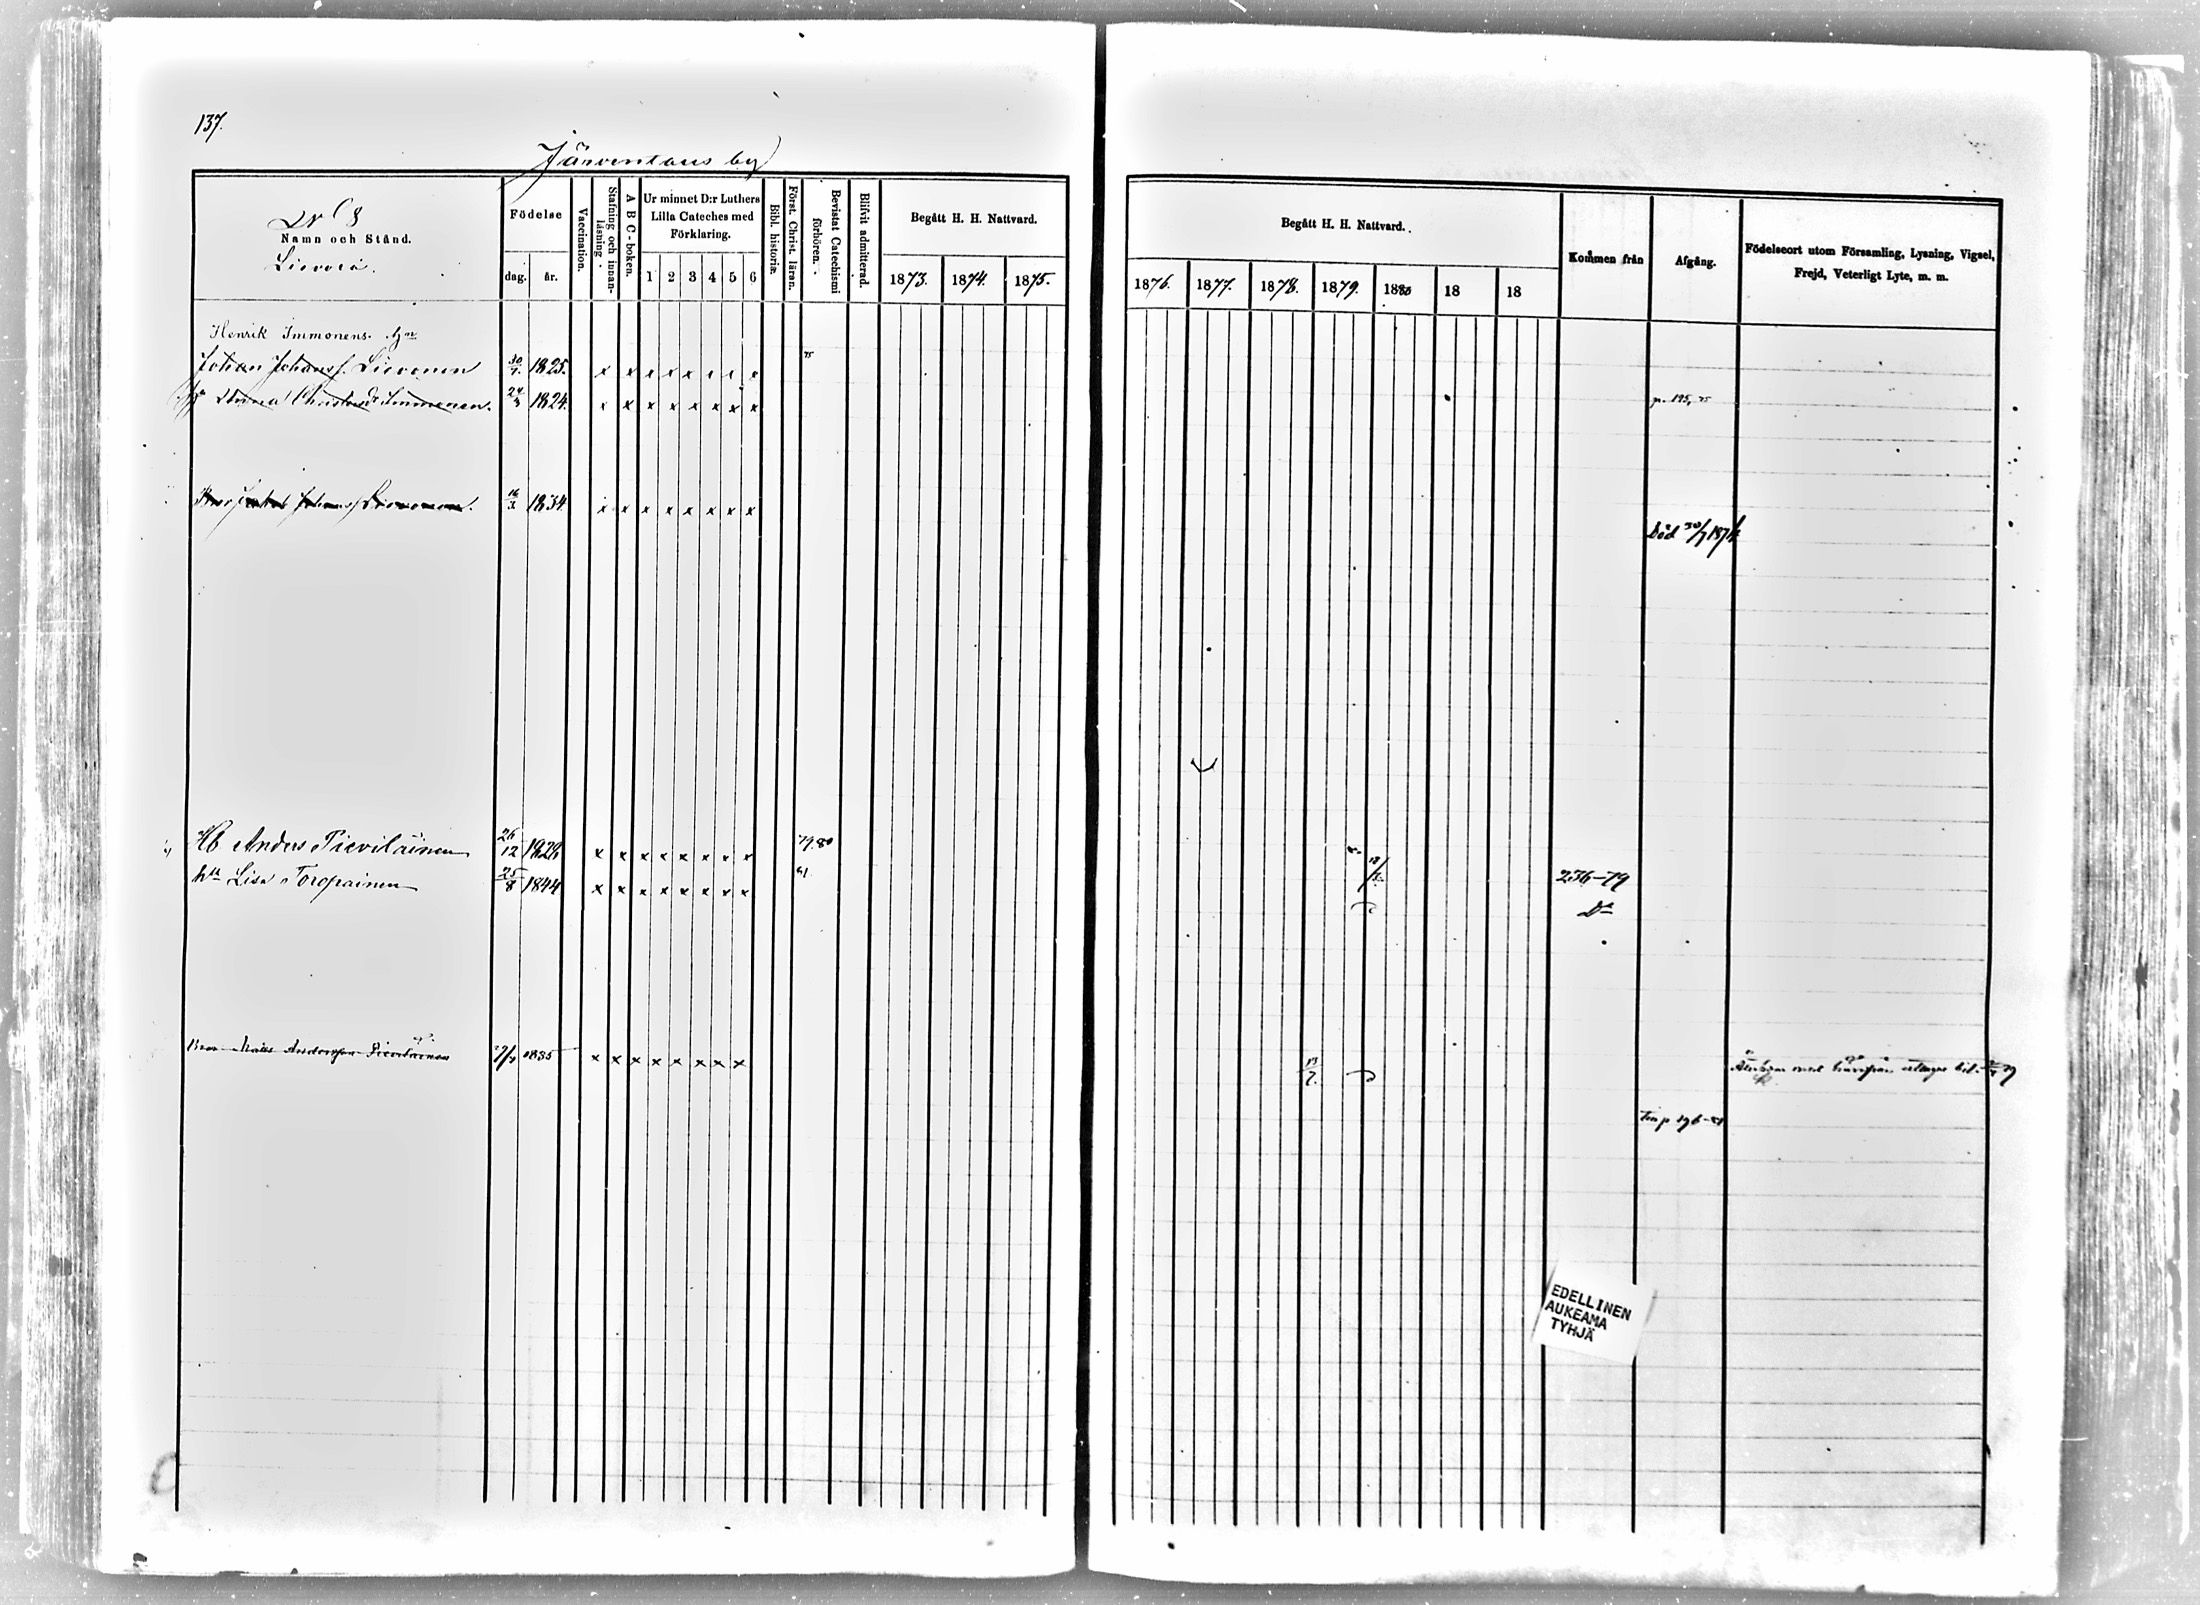 137.
Järventaus by
No 8
Namn och Stånd.
Födelse
dag.
år.
Vaccination.
Stafning och innan-
läsning.
A B C-boken.
Ur minnet D:r Luthers
Lilla Cateches med
Förklaring.
1 2 3 4 5 6
Bibl. historiæ.
Först. Christ. läran.
Bevistat Catechismi
förhören.
Blifvit admitterad.
Begått H. H. Nattvard.
1873. 1874. 1875.
Henrik Immonens
Johan Johanss. Lievonen 30/7. 1825. x x x x x x x x 75
Anna Christersdr Immonen. 24/3 1824. x x x x x x x x
Johanss. Lievonen. 16/3 1834. x x x x x x x x
Anders Pieviläinen 26/12 1829 x x x x x x x x 79. 80
Lisa Toropainen 25/8 1844 x x x x x x x x 81
Andersson Pieviläinen 1835 x x x x x x x x
Begått H. H. Nattvard.
1876. 1877. 1878. 1879. 1880 18 18
Kommen från
Afgång.
Födelseort utom Församling, Lysning, Vigsel,
Frejd, Veterligt Lyte, m. m.
p. 195, 75
Död 30/7 1874
236-79
Do
13/7.
EDELLINEN
AUKEAMA
TYHJÄ